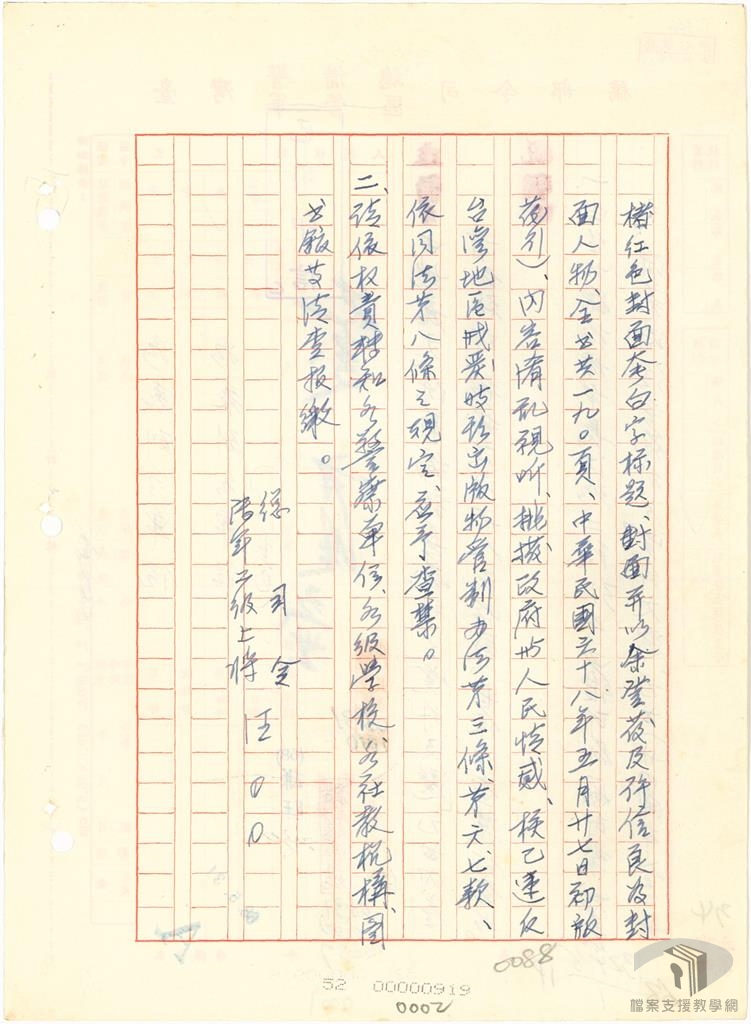 橘紅色封面套白字标題、封面并以余登發及許信良為封
面人物、全书共一九０頁、中華民國六十八年五月廿七日初版
發行)、內容淆乱視听、挑撥政府與人民情感、核已違反
台灣地区戒嚴時期出版物管制办法第三條、第六、七款、
依同法第八條之規定、應予查禁。
二、請依权責轉知各警察單位、各級學校、各社教机構、圖
书館等清查报繳。
總司令
陸軍二級上將 汪００
0088
52 00000919
0002
檔案支援教學網